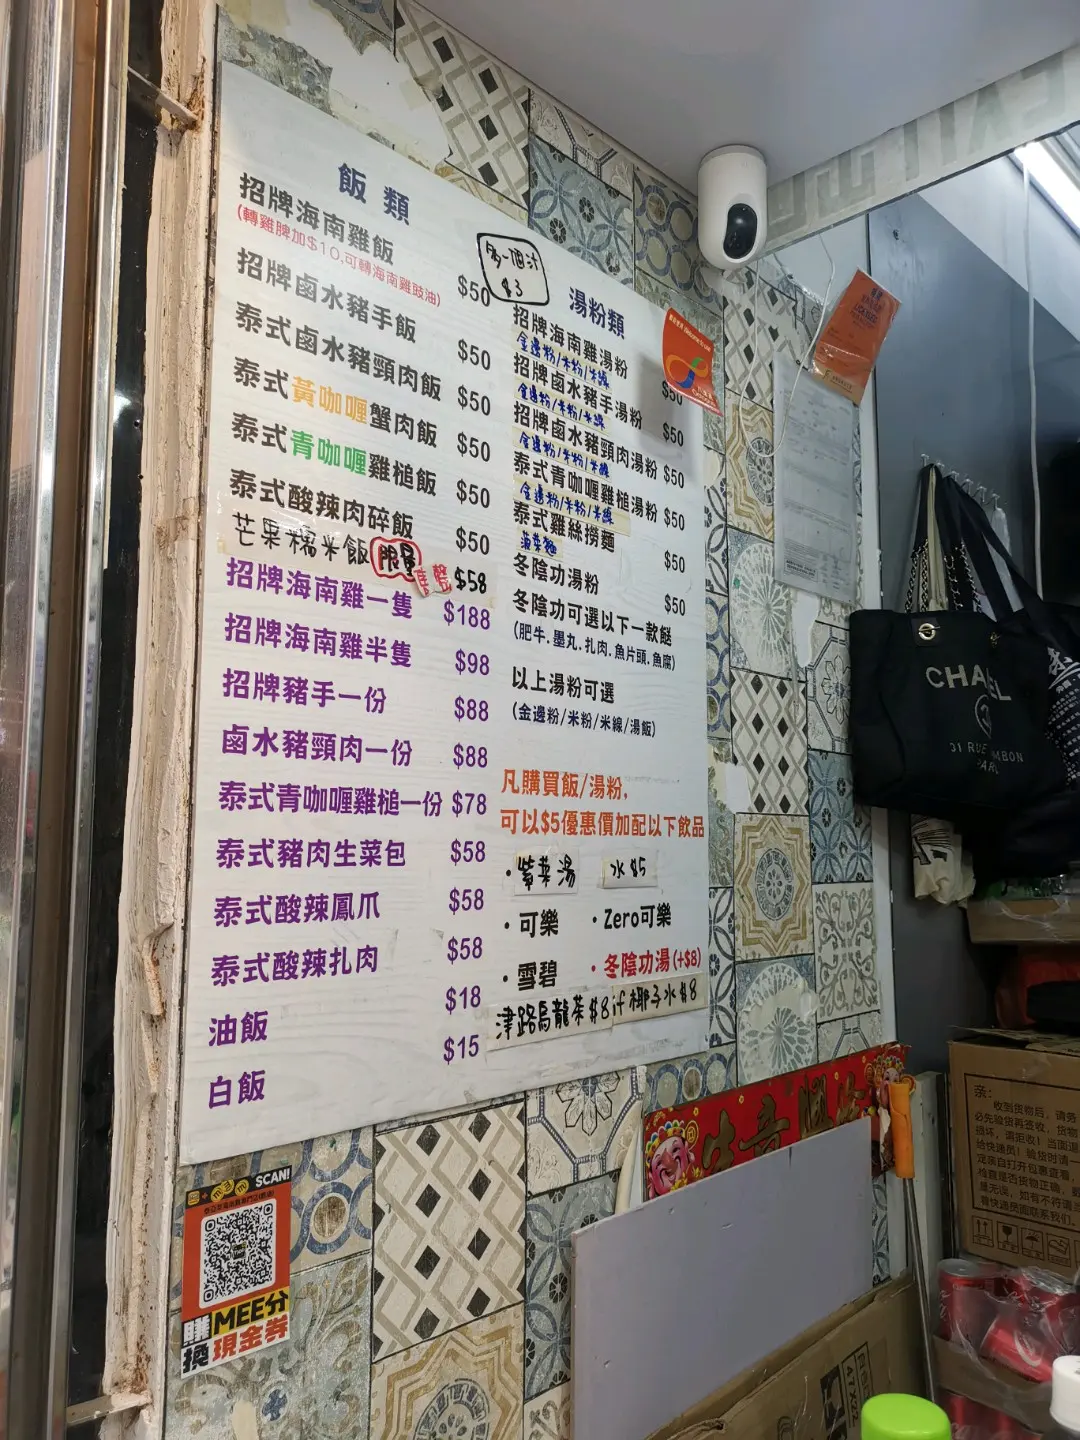 飯類
招牌海南雞飯 $50
(轉雞脾加$10,可轉海南雞豉油)
招牌鹵水豬手飯 $50
泰式鹵水豬頸肉飯 $50
泰式黃咖喱蟹肉飯 $50
泰式青咖喱雞槌飯 $50
泰式酸辣肉碎飯 $50
芒果糯米飯 限量 售整 $58
招牌海南雞一隻 $188
招牌海南雞半隻 $98
招牌豬手一份 $88
鹵水豬頸肉一份 $88
泰式青咖喱雞槌一份 $78
泰式豬肉生菜包 $58
泰式酸辣鳳爪 $58
泰式酸辣扎肉 $58
油飯 $18
白飯 $15
多一個汁
$3
湯粉類
招牌海南雞湯粉 $50
金邊粉/米粉/米線
招牌鹵水豬手湯粉 $50
金邊粉/米粉/米線
招牌鹵水豬頸肉湯粉 $50
金邊粉/米粉/米線
泰式青咖喱雞槌湯粉 $50
金邊粉/米粉/米線
泰式雞絲撈麵 $50
菠菜麵
冬陰功湯粉 $50
冬陰功可選以下一款餸
(肥牛.墨丸.扎肉.魚片頭.魚腐)
以上湯粉可選
(金邊粉/米粉/米線/湯飯)
凡購買飯/湯粉,
可以$5優惠價加配以下飲品
·紫菜湯 水 $5
·可樂 ·Zero可樂
·雪碧 ·冬陰功湯(+$8)
津路烏龍茶$8 if椰子水$8
SCAN!
賺MEE分
換現金券
CHANEL
31 RUE CAMBON
PARIS
亲:
收到货物后，请务
必先验货再签收，货物
损坏，满拒收！当面退
给快递员！验货时请一
定亲自打开包裹查看，